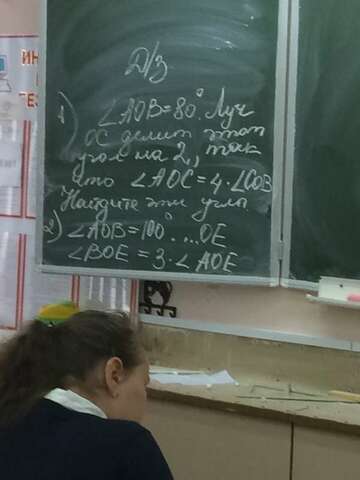 Д/з
1) ∠AOB=80°. Луч
OC делит этот
угол на 2, так
что ∠AOC=4·∠COB
Найдите эти углы.
2) ∠AOB=100°. ...OE
∠BOE=3·∠AOE
ИН
БЕЗ